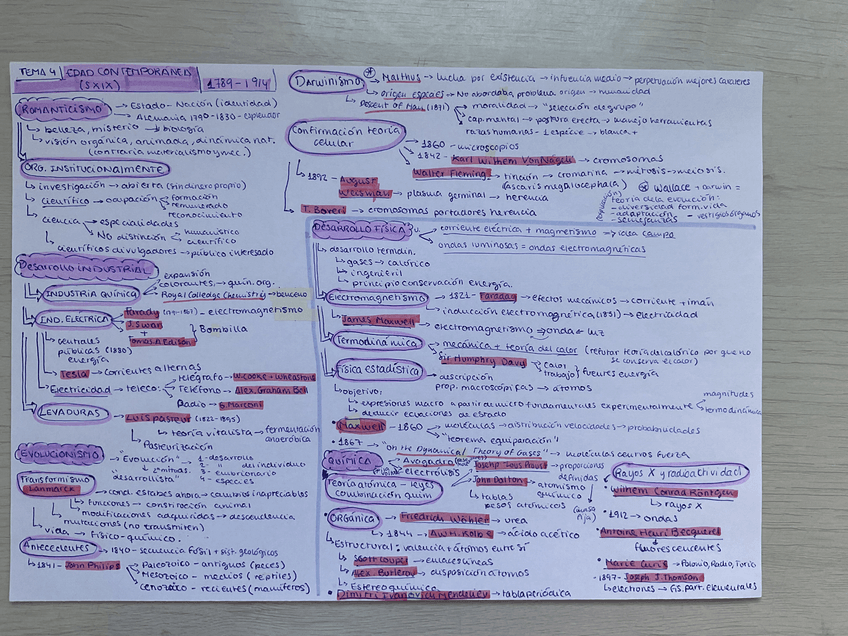 TEMA 4 EDAD CONTEMPORANEA 1789-1914
(SXIX)
ROMANTICISMO → Estado-Nación (identidad)
→ Alemania 1790-1830 - esplendor
↳ belleza, misterio → biología
↳ visión orgánica, animada, dinámica nat.
(contraria materialismo y mec.)
ORG. INSTITUCIONALMENTE
↳ investigación → abierta (sin dinero propio)
↳ científico → ocupación → formación
remunerado
reconocimiento
↳ ciencia → especialidades
↳ No distinción → humanístico
científico
↳ científicos divulgadores → público interesado
Desarrollo INDUSTRIAL
→ INDUSTRIA QUÍMICA → expansión
colorantes → quím. org.
Royal Colledge Chemistry → benceno
→ IND. ELÉCTRICA → Farady - electromagnetismo
J. Swan
+
Tomas A. Edison } Bombilla
↳ centrales
públicas (1880)
energía
↳ Tesla → corrientes alternas
↳ Electricidad → teleco: → telégrafo → W. Cooke + Wheatstone
Teléfono → Alex. Graham Bell
Radio → G. Marconi
→ LEVADURAS → Luis Pasteur (1822-1895)
↳ teoría vitalista → fermentación
anaeróbica
Pasteurización
EVOLUCIONISMO → "Evolución" → 1 - desarrollo
2 - " del individuo
3 - embrionario
4 - especies
"desarrollista"
Transformismo
Lammarck → cond. estables ahora → cambios inapreciables
↳ funciones → constitución animal
↳ modificaciones adquiridas → descendencia
mutaciones (no transmiten)
↳ vida → físico-químico.
Antecedentes → 1840 - secuencia fósil + hist. geológicos
↳ 1841 - John Philips → Paleozoico - antiguos (peces)
Mesozoico - medios (reptiles)
Cenozoico - recientes (mamíferos)
Darwinismo * → Malthus → lucha por existencia → influencia medio → perpetuación mejores caracteres
→ origen especies → No abordaba problema origen → humanidad
→ Descent of Man (1871) → moralidad → "selección de grupo"
cap. mental → postura erecta → manejo herramientas
razas humanas - 1 especie → blanca +
Confirmación teoría
celular → 1860 - microscopios
→ 1842 - Karl Wilhem Von Nägeli → cromosomas
Walter Fleming → tinción → cromatina → mitosis → meiosis.
(ascaris megalocephala)
↳ 1892 - August
Weisman → plasma germinal → herencia
↳ T. Boveri → cromosomas portadores herencia
* Wallace + Darwin =
teoría de la evolución:
- diversidad form. vida
- adaptación
- semejanzas
- vestigios órganos
DESARROLLO FÍSICA → corriente eléctrica + magnetismo → idea campo
ondas luminosas = ondas electromagnéticas
↳ desarrollo termdin.
↳ gases → calórico
↳ ingenieril
↳ principio conservación energía.
Electromagnetismo → 1821 - Faraday → efectos mecánicos → corriente + imán
↳ inducción electromagnética (1831) → electricidad
↳ James Maxwell → electromagnetismo → onda → luz
Termodinámica → mecánica + teoría del calor (refutar teoría del calórico por que no
se conserva el calor)
Sir Humphry Davy → calor
trabajo } fuentes energía
Física estadística → descripción
prop. macroscópicas → átomos
↳ objetivo:
↳ expresiones macro a partir micro fundamentales experimentalmente → magnitudes
termodinámicas
↳ deducir ecuaciones de estado
• Maxwell - 1860 → moléculas → distribución velocidades → probabilidades
↳ "teorema equipartición"
• 1867 → "On the Dynamical Theory of Gases" → moléculas centros fuerza
QUÍMICA → Avogadro
→ electrólisis
Teoría atómica - leyes
combinación quím → Joseph Louis Proust → proporciones
definidas
John Dalton → atomismo
químico
↳ tablas
pesos atómicos
ORGÁNICA → Friedrich Wöhler → urea
↳ 1844 - A.W.H. Kolbe → ácido acético
↳ Estructural: valencia + átomos entre sí
↳ Scott Couper → enlaces líneas
↳ Alex. Butlerov → disposición átomos
↳ Estereoquímica
• Dimitri Ivanovich Mendeleiev → tabla periódica
Rayos X y radioactividad
Wilhem Conrad Röntgen
↳ rayos X
• 1912 → ondas
• Antoine Henri Becquerel
↳ fluorescentes
• Marie Curie → Polonio, Radio, Torio
• 1897 - Joseph J. Thomson
↳ electrones → Fís. part. Elementales